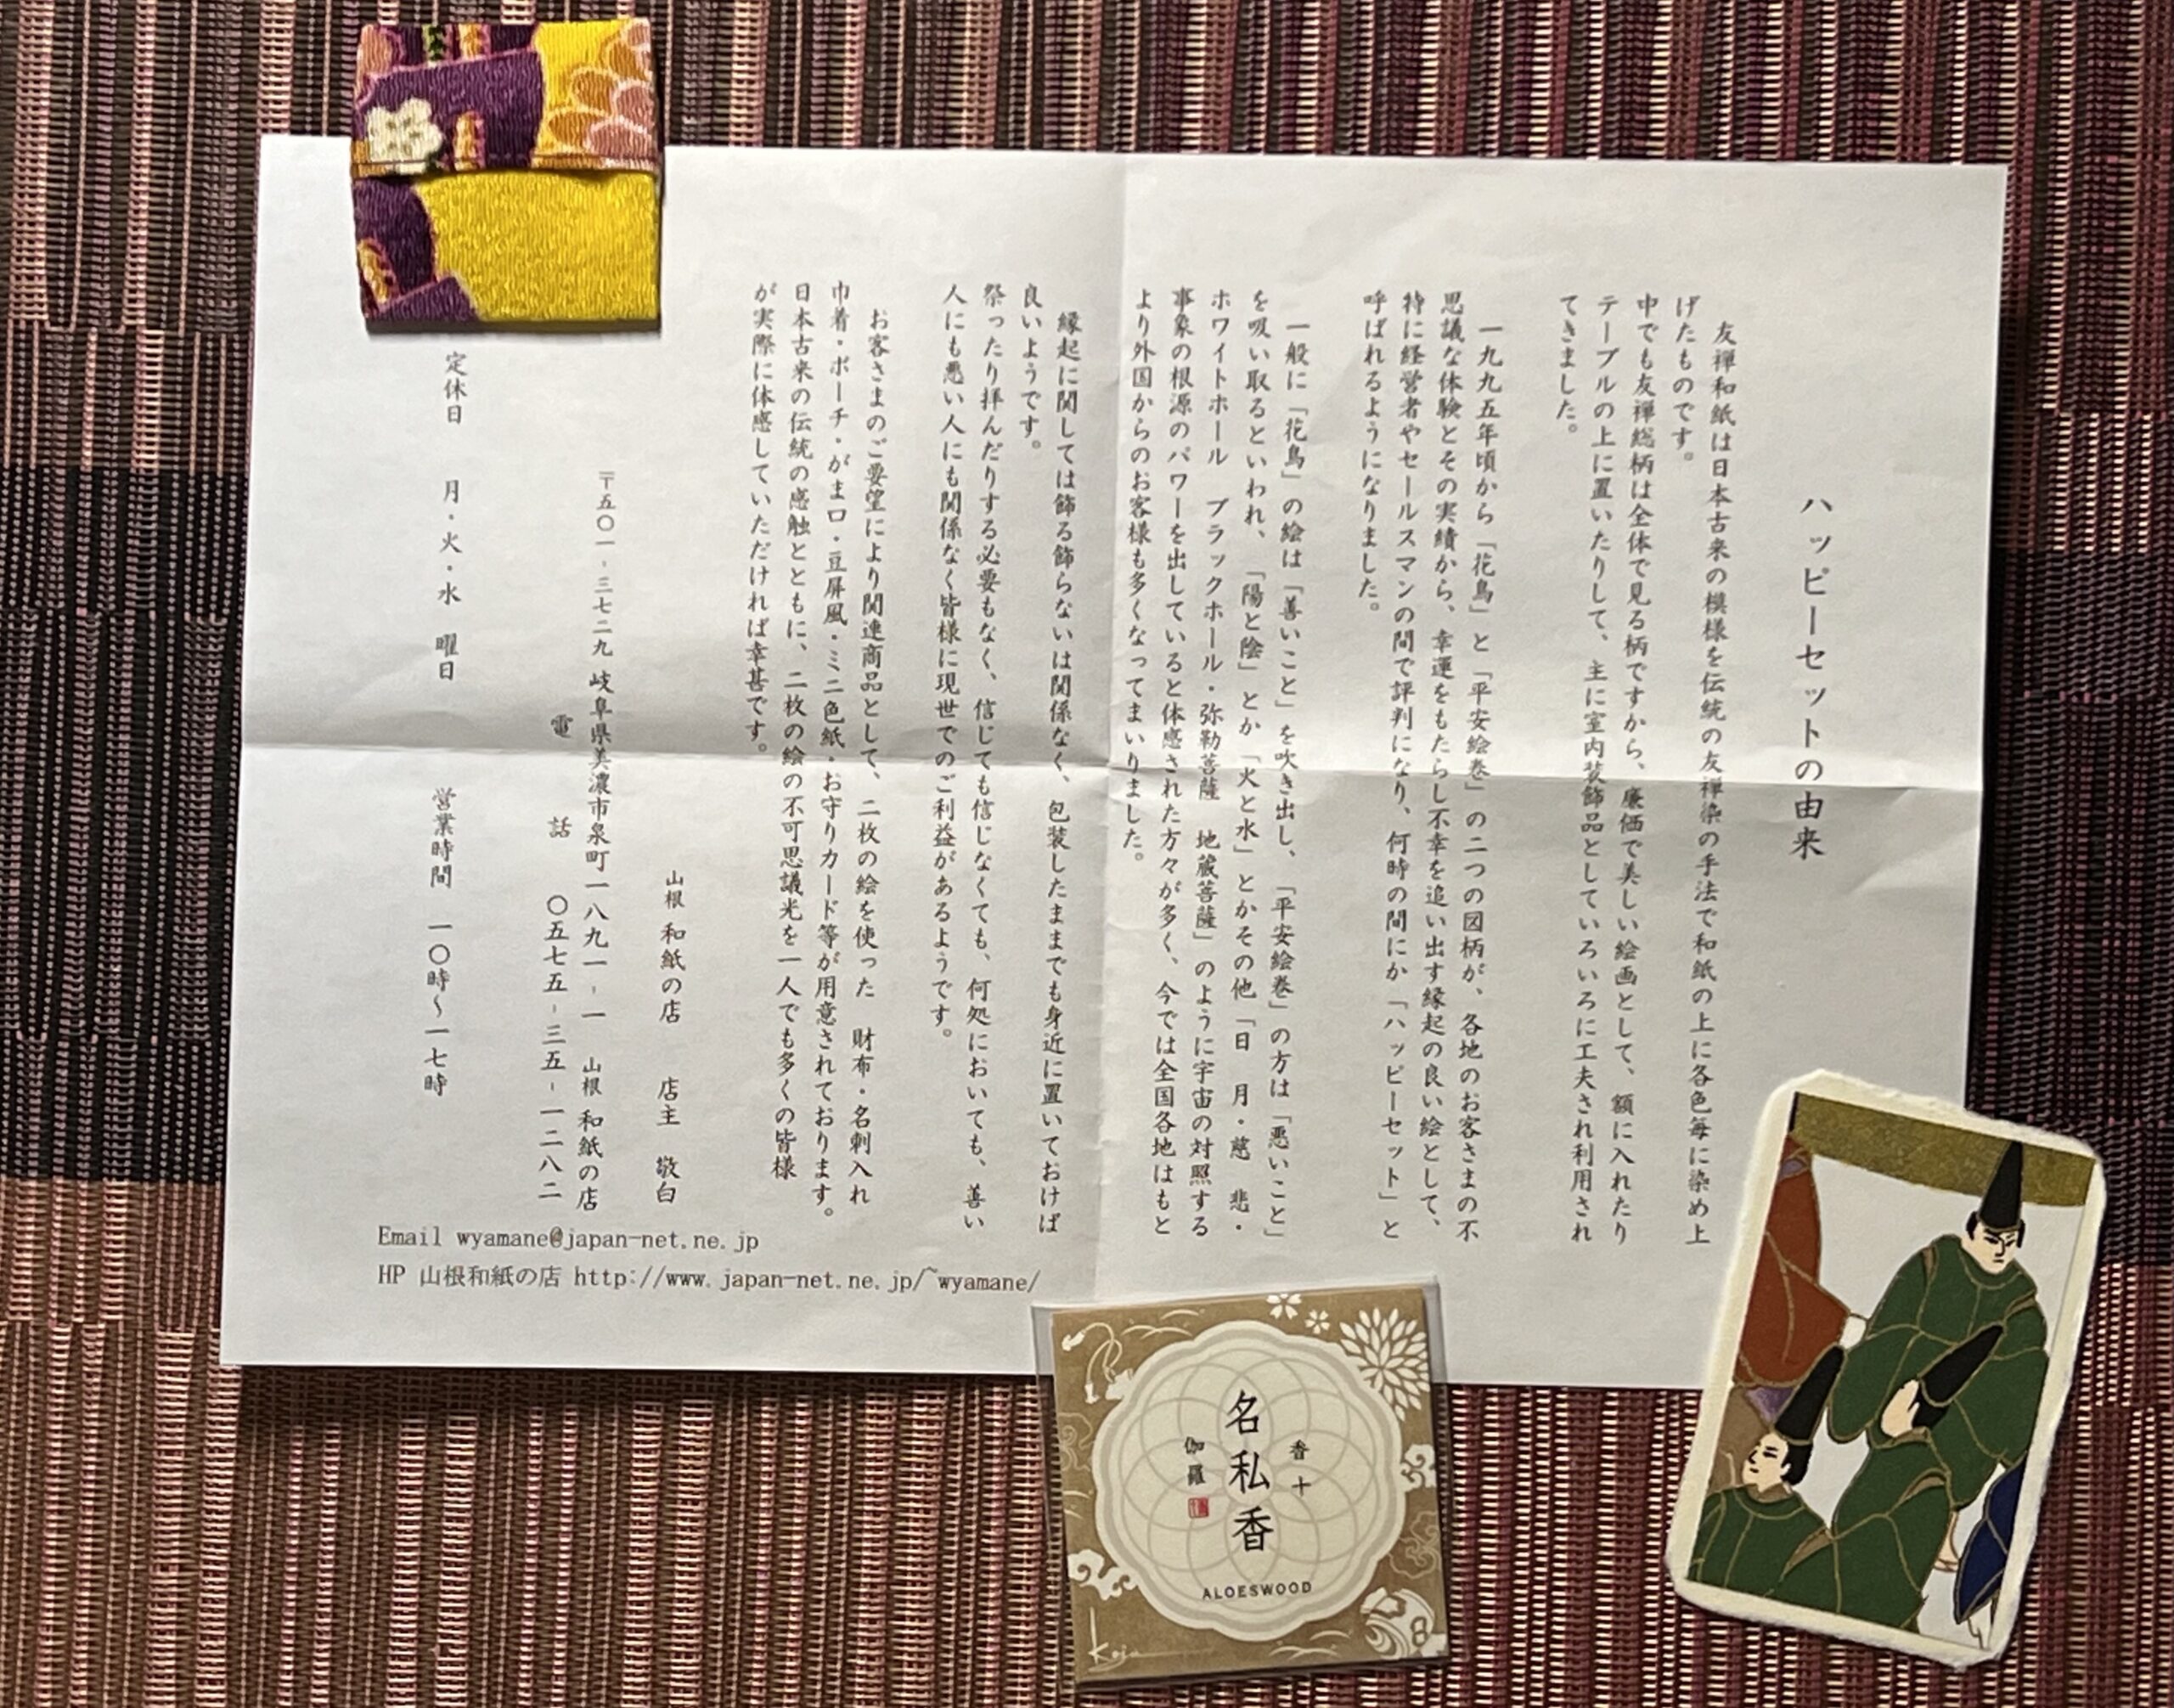 ハッピーセットの由来
友禅和紙は日本古来の模様を伝統の友禅染の手法で和紙の上に各色毎に染め上
げたものです。
中でも友禅総柄は全体で見る柄ですから、廉価で美しい絵画として、額に入れたり
テーブルの上に置いたりして、主に室内装飾品としていろいろに工夫され利用され
てきました。
一九九五年頃から「花鳥」と「平安絵巻」の二つの図柄が、各地のお客さまの不
思議な体験とその実績から、幸運をもたらし不幸を追い出す縁起の良い絵として、
特に経営者やセールスマンの間で評判になり、何時の間にか「ハッピーセット」と
呼ばれるようになりました。
一般に「花鳥」の絵は「善いこと」を吹き出し、「平安絵巻」の方は「悪いこと」
を吸い取るといわれ、「陽と陰」とか「火と水」とかその他「日 月・慈 悲・
ホワイトホール ブラックホール・弥勒菩薩 地蔵菩薩」のように宇宙の対照する
事象の根源のパワーを出していると体感された方々が多く、今では全国各地はもと
より外国からのお客様も多くなってまいりました。
縁起に関しては飾る飾らないは関係なく、包装したままでも身近に置いておけば
良いようです。
祭ったり拝んだりする必要もなく、信じても信じなくても、何処においても、善い
人にも悪い人にも関係なく皆様に現世でのご利益があるようです。
お客さまのご要望により関連商品として、二枚の絵を使った 財布・名刺入れ
巾着・ポーチ・がま口・豆屏風・ミニ色紙・お守りカード等が用意されております。
日本古来の伝統の感触とともに、二枚の絵の不可思議光を一人でも多くの皆様
が実際に体感していただければ幸甚です。
山根 和紙の店 店主 敬白
〒五〇一-三七二九 岐阜県美濃市泉町一八九一-一 山根 和紙の店
電 話 〇五七五-三五-一二八二
定休日 月・火・水 曜日 営業時間 一〇時~一七時
Email wyamane@japan-net.ne.jp
HP 山根和紙の店 http://www.japan-net.ne.jp/~wyamane/
香十
名私香
伽羅
ALOESWOOD
Koju